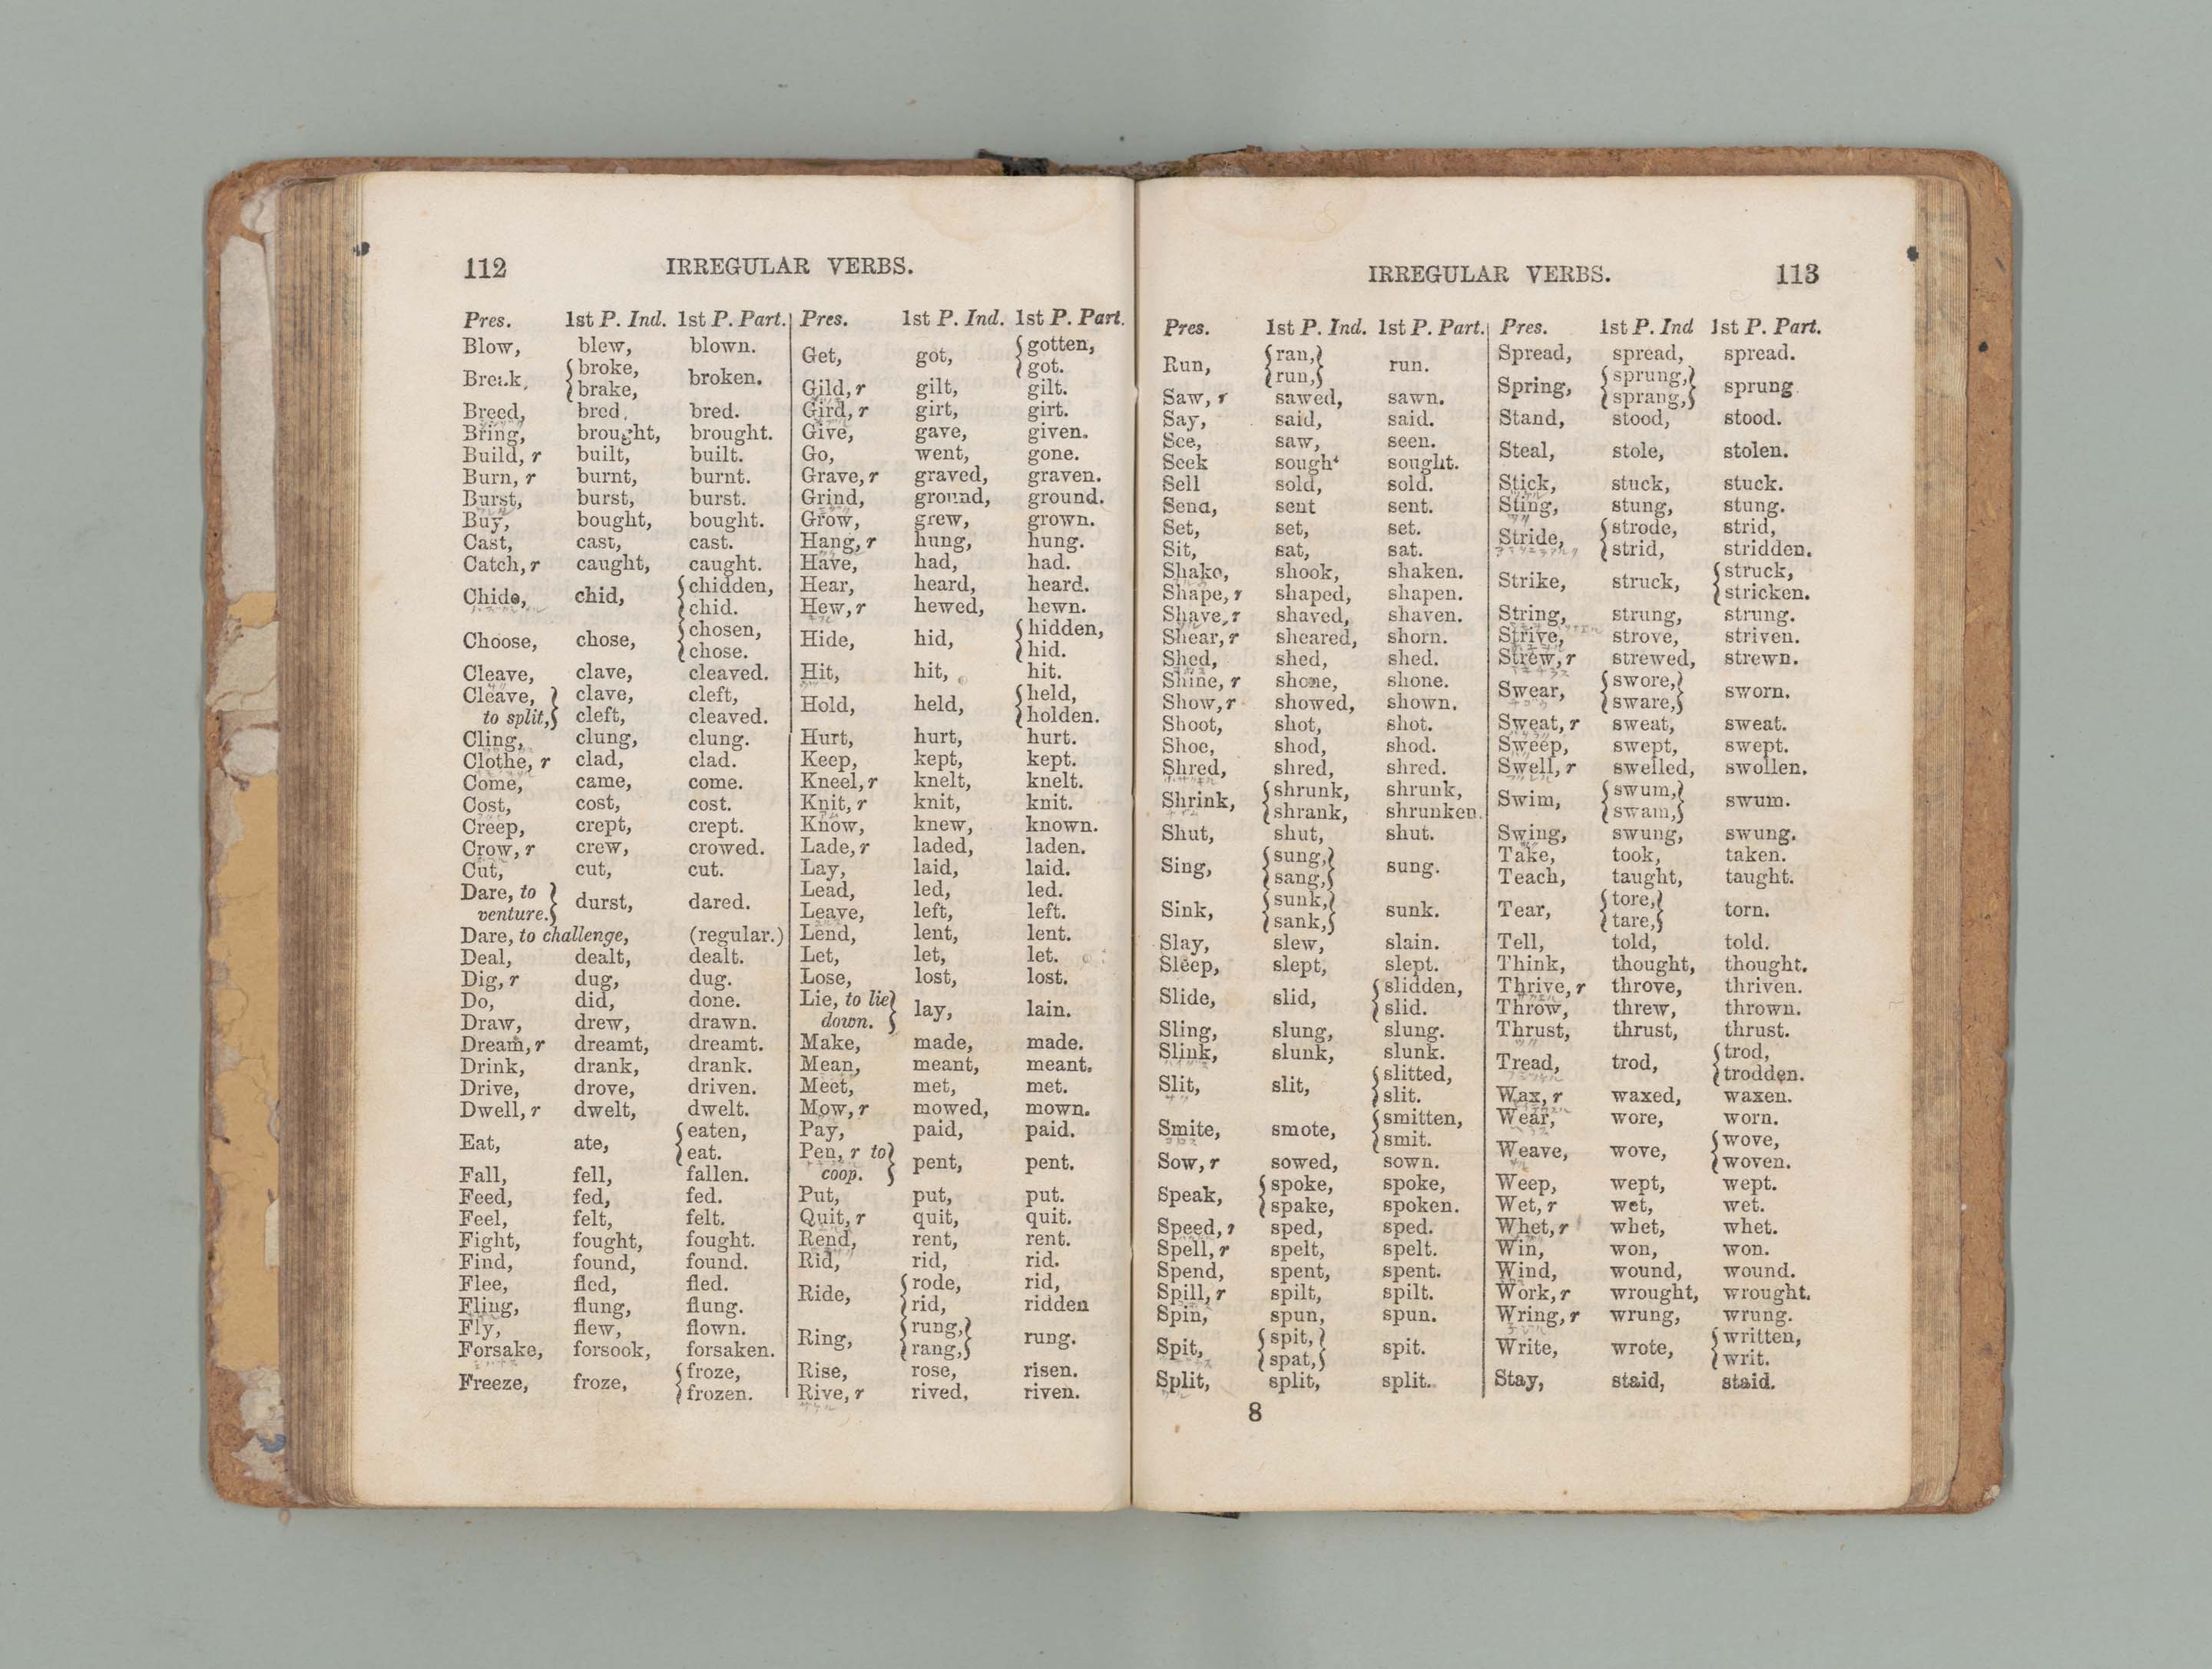 112 IRREGULAR VERBS.
Pres. 1st P. Ind. 1st P. Part.
Blow, blew, blown.
Break, {broke, brake, broken.
Breed, bred, bred.
Bring, brought, brought.
Build, r built, built.
Burn, r burnt, burnt.
Burst, burst, burst.
Buy, bought, bought.
Cast, cast, cast.
Catch, r caught, caught.
Chide, chid, {chidden, chid.
Choose, chose, {chosen, chose.
Cleave, clave, cleaved.
Cleave, to split,} clave, cleft, cleft, cleaved.
Cling, clung, clung.
Clothe, r clad, clad.
Come, came, come.
Cost, cost, cost.
Creep, crept, crept.
Crow, r crew, crowed.
Cut, cut, cut.
Dare, to venture.} durst, dared.
Dare, to challenge, (regular.)
Deal, dealt, dealt.
Dig, r dug, dug.
Do, did, done.
Draw, drew, drawn.
Dream, r dreamt, dreamt.
Drink, drank, drank.
Drive, drove, driven.
Dwell, r dwelt, dwelt.
Eat, ate, {eaten, eat.
Fall, fell, fallen.
Feed, fed, fed.
Feel, felt, felt.
Fight, fought, fought.
Find, found, found.
Flee, fled, fled.
Fling, flung, flung.
Fly, flew, flown.
Forsake, forsook, forsaken.
Freeze, froze, {froze, frozen.
Pres. 1st P. Ind. 1st P. Part.
Get, got, {gotten, got.
Gild, r gilt, gilt.
Gird, r girt, girt.
Give, gave, given.
Go, went, gone.
Grave, r graved, graven.
Grind, ground, ground.
Grow, grew, grown.
Hang, r hung, hung.
Have, had, had.
Hear, heard, heard.
Hew, r hewed, hewn.
Hide, hid, {hidden, hid.
Hit, hit, hit.
Hold, held, {held, holden.
Hurt, hurt, hurt.
Keep, kept, kept.
Kneel, r knelt, knelt.
Knit, r knit, knit.
Know, knew, known.
Lade, r laded, laden.
Lay, laid, laid.
Lead, led, led.
Leave, left, left.
Lend, lent, lent.
Let, let, let.
Lose, lost, lost.
Lie, to lie down.} lay, lain.
Make, made, made.
Mean, meant, meant.
Meet, met, met.
Mow, r mowed, mown.
Pay, paid, paid.
Pen, r to coop.} pent, pent.
Put, put, put.
Quit, r quit, quit.
Rend, rent, rent.
Rid, rid, rid.
Ride, {rode, rid, rid, ridden
Ring, {rung, rang,} rung.
Rise, rose, risen.
Rive, r rived, riven.
IRREGULAR VERBS. 113
Pres. 1st P. Ind. 1st P. Part.
Run, {ran, run,} run.
Saw, r sawed, sawn.
Say, said, said.
See, saw, seen.
Seek sought sought.
Sell sold, sold.
Send, sent sent.
Set, set, set.
Sit, sat, sat.
Shake, shook, shaken.
Shape, r shaped, shapen.
Shave, r shaved, shaven.
Shear, r sheared, shorn.
Shed, shed, shed.
Shine, r shone, shone.
Show, r showed, shown.
Shoot, shot, shot.
Shoe, shod, shod.
Shred, shred, shred.
Shrink, {shrunk, shrank, shrunk, shrunken.
Shut, shut, shut.
Sing, {sung, sang,} sung.
Sink, {sunk, sank,} sunk.
Slay, slew, slain.
Sleep, slept, slept.
Slide, slid, {slidden, slid.
Sling, slung, slung.
Slink, slunk, slunk.
Slit, slit, {slitted, slit.
Smite, smote, {smitten, smit.
Sow, r sowed, sown.
Speak, {spoke, spake, spoke, spoken.
Speed, r sped, sped.
Spell, r spelt, spelt.
Spend, spent, spent.
Spill, r spilt, spilt.
Spin, spun, spun.
Spit, {spit, spat,} spit.
Split, split, split.
Pres. 1st P. Ind 1st P. Part.
Spread, spread, spread.
Spring, {sprung, sprang,} sprung
Stand, stood, stood.
Steal, stole, stolen.
Stick, stuck, stuck.
Sting, stung, stung.
Stride, {strode, strid, strid, stridden.
Strike, struck, {struck, stricken.
String, strung, strung.
Strive, strove, striven.
Strew, r strewed, strewn.
Swear, {swore, sware,} sworn.
Sweat, r sweat, sweat.
Sweep, swept, swept.
Swell, r swelled, swollen.
Swim, {swum, swam,} swum.
Swing, swung, swung.
Take, took, taken.
Teach, taught, taught.
Tear, {tore, tare,} torn.
Tell, told, told.
Think, thought, thought.
Thrive, r throve, thriven.
Throw, threw, thrown.
Thrust, thrust, thrust.
Tread, trod, {trod, trodden.
Wax, r waxed, waxen.
Wear, wore, worn.
Weave, wove, {wove, woven.
Weep, wept, wept.
Wet, r wet, wet.
Whet, r whet, whet.
Win, won, won.
Wind, wound, wound.
Work, r wrought, wrought.
Wring, r wrung, wrung.
Write, wrote, {written, writ.
Stay, staid, staid.
8